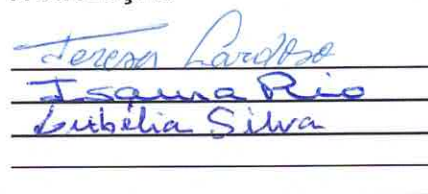 Teresa Cardoso
Isaura Rio
Lubélia Silva